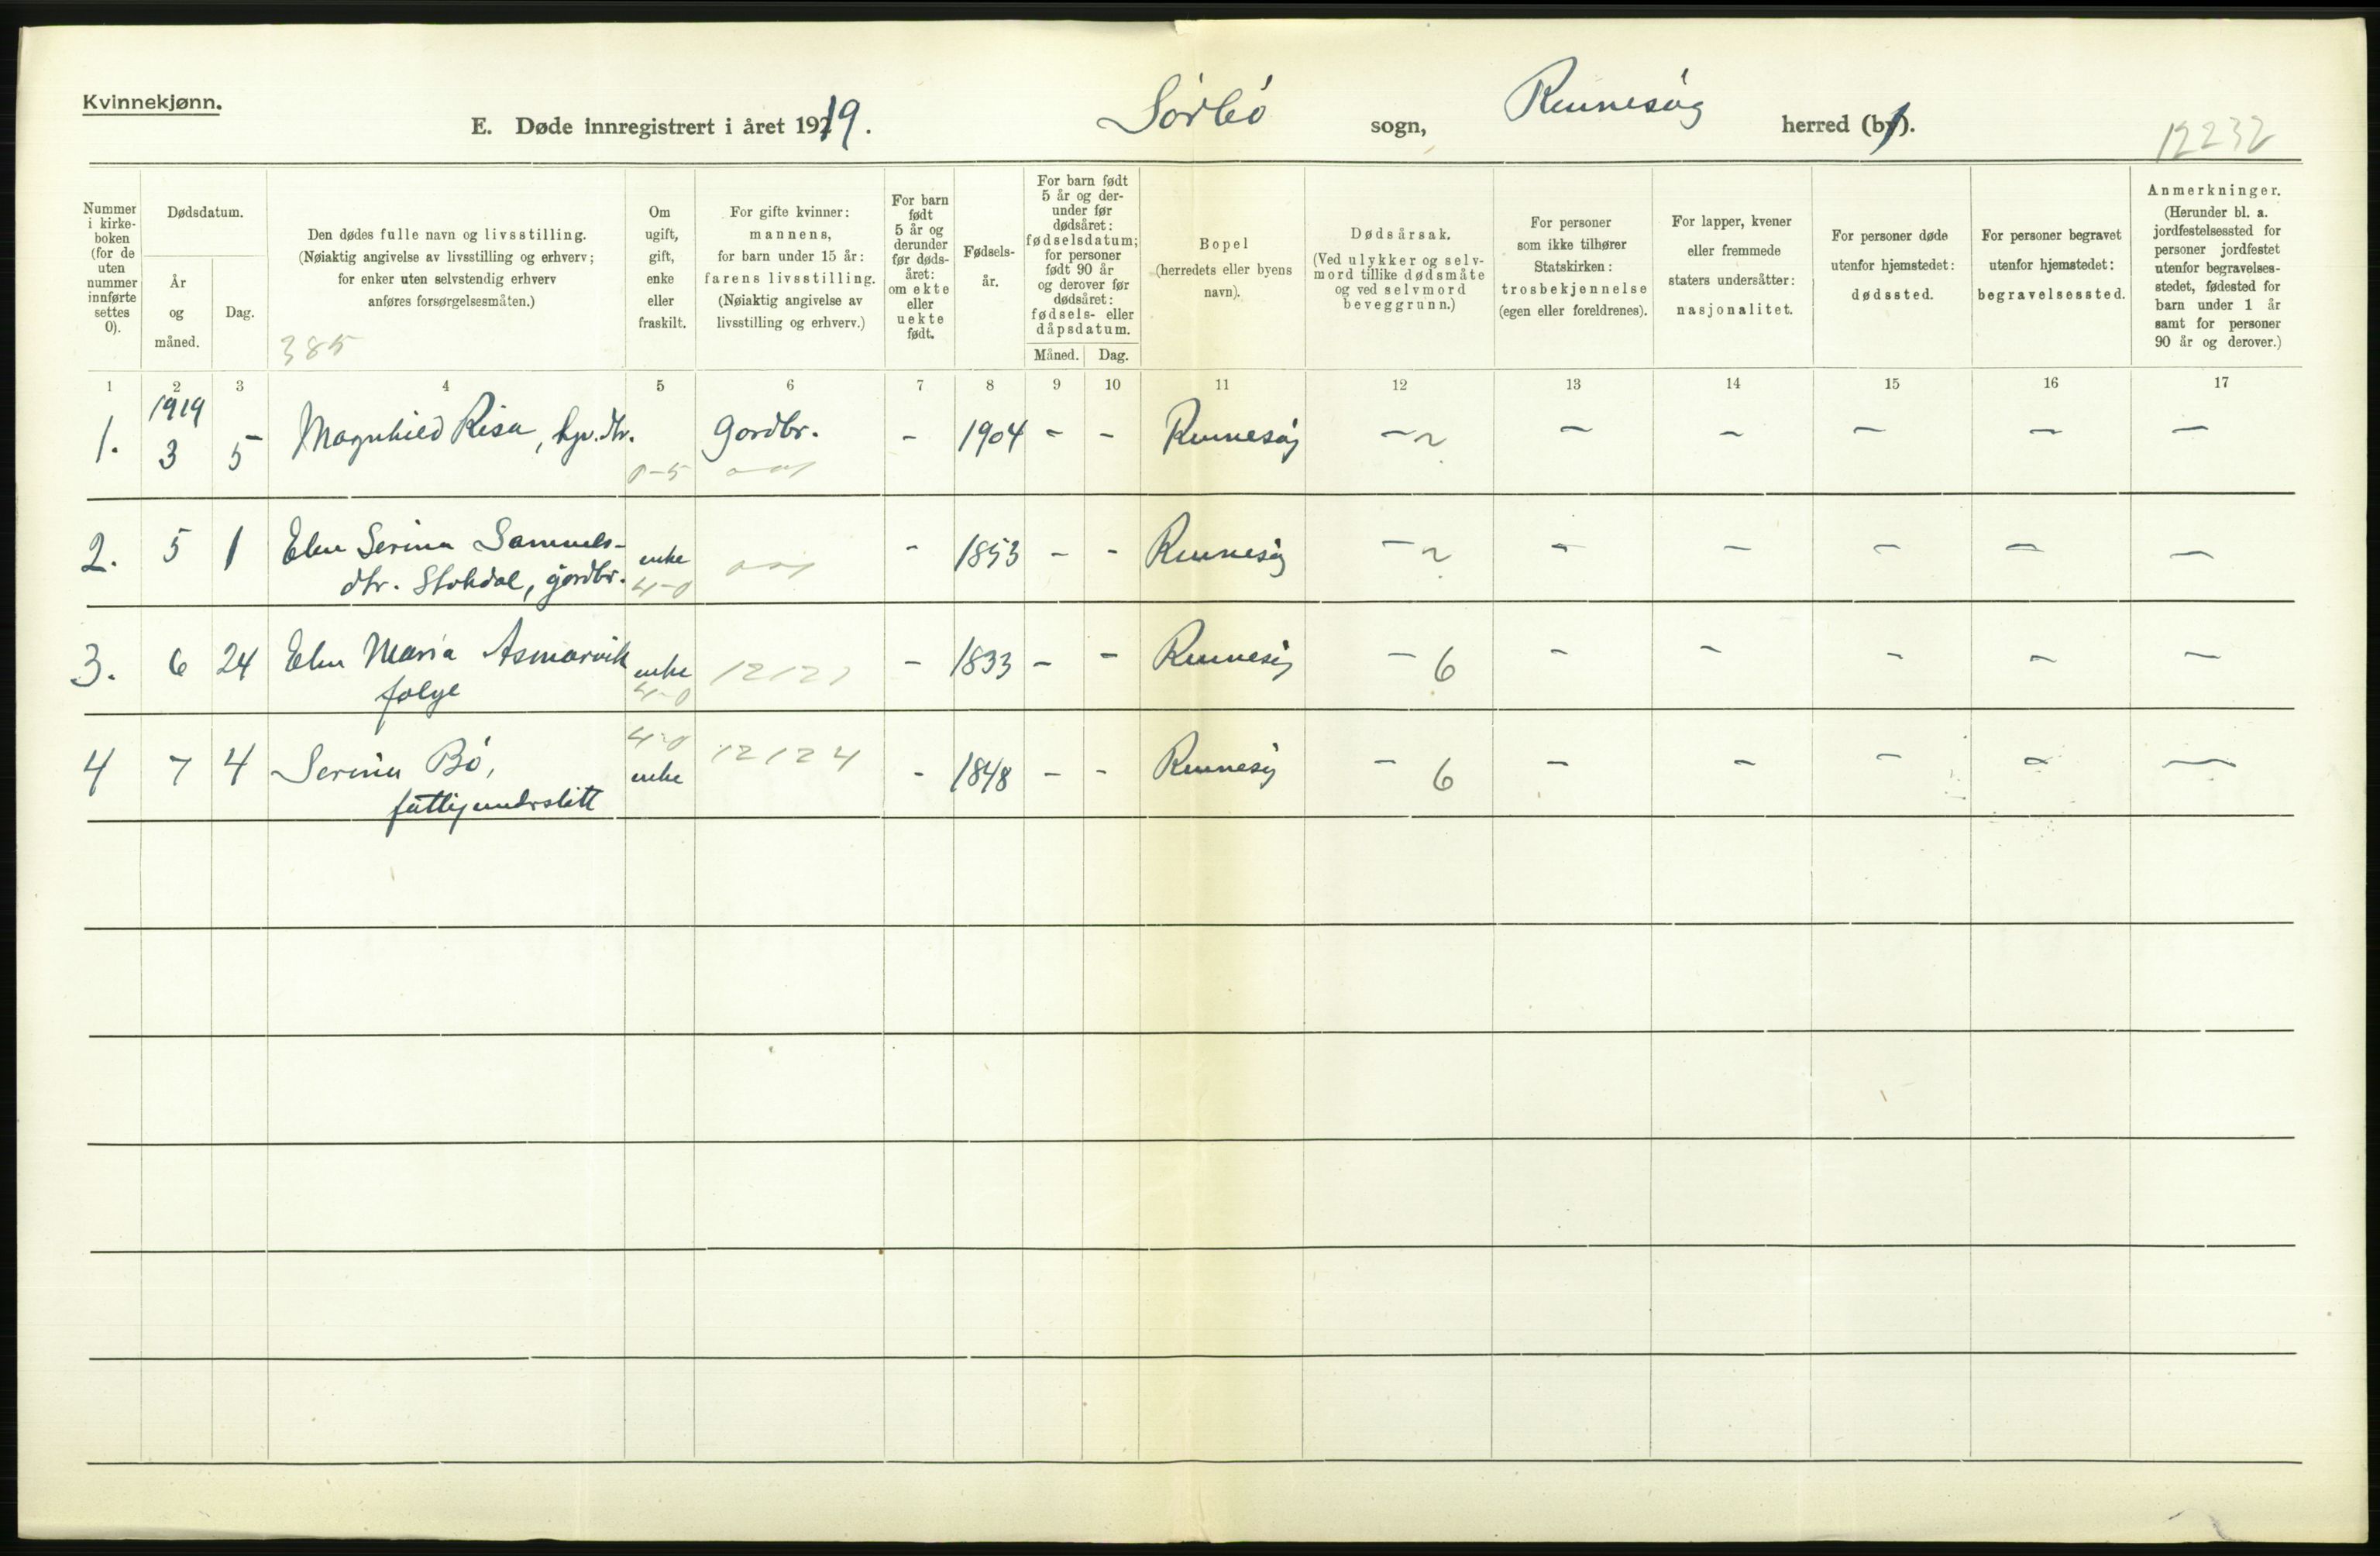 Kvinnekjønn.
E. Døde innregistrert i året 1919. Sörbö sogn, Rennesöy herred (by).
12232
Nummer i kirkeboken (for de uten nummer innførte settes 0).
Dødsdatum.
År og måned.
Dag.
Den dødes fulle navn og livsstilling.
(Nøiaktig angivelse av livsstilling og erhverv;
for enker uten selvstendig erhverv
anføres forsørgelsesmåten.)
385
Om ugift, gift, enke eller fraskilt.
For gifte kvinner:
mannens,
for barn under 15 år:
farens livsstilling.
(Nøiaktig angivelse av
livsstilling og erhverv.)
For barn født 5 år og derunder før dødsåret: om ekte eller uekte født.
Fødselsår.
For barn født 5 år og derunder før dødsåret: fødselsdatum; for personer født 90 år og derover før dødsåret: fødsels- eller dåpsdatum.
Måned. Dag.
Bopel
(herredets eller byens
navn).
Dødsårsak.
(Ved ulykker og selv-
mord tillike dødsmåte
og ved selvmord
beveggrunn.)
For personer
som ikke tilhører
Statskirken:
trosbekjennelse
(egen eller foreldrenes).
For lapper, kvener
eller fremmede
staters undersåtter:
nasjonalitet.
For personer døde
utenfor hjemstedet:
dødssted.
For personer begravet
utenfor hjemstedet:
begravelsessted.
Anmerkninger.
(Herunder bl. a.
jordfestelsessted for
personer jordfestet
utenfor begravelses-
stedet, fødested for
barn under 1 år
samt for personer
90 år og derover.)
1 2 3 4 5 6 7 8 9 10 11 12 13 14 15 16 17
1919
1. 3 5 Magnhild Risa, Gardbr. - 1904 - - Rennesöy - ~ - - - - -
0-5
2. 5 1 Elen Serina Samuels- enke - 1853 - - Rennesöy - ~ - - - - -
dtr. Stokdal, gardbr. 4-0
3. 6 24 Elen Maria Asmarvik enke 12127 - 1833 - - Rennesöy - 6 - - - - -
folge 4-0
4-0
4 7 4 Serina Bö, enke 12124 - 1848 - - Rennesöy - 6 - - - - -
fattigunderstött